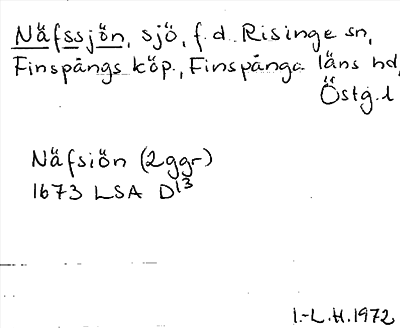 Näfssjön, sjö, f.d. Risinge sn,
Finspångs köp., Finspånga läns hd,
Östg.l
Näfsiön (2ggr)
1673 LSA D13
I.-L.H.1972